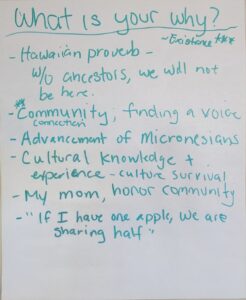 What is your why?
~ Existence ***
- Hawaiian proverb -
w/o ancestors, we will not
be here.
** - Community, finding a voice
connection
- Advancement of Micronesians
- Cultural knowledge +
experience - culture survival
- My mom, honor community
- "If I have one apple, we are
sharing half"